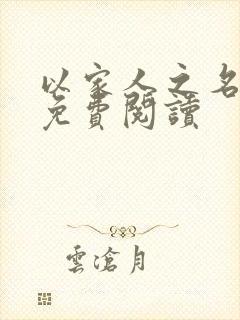 以家人之名
免費閱讀
雲滄月